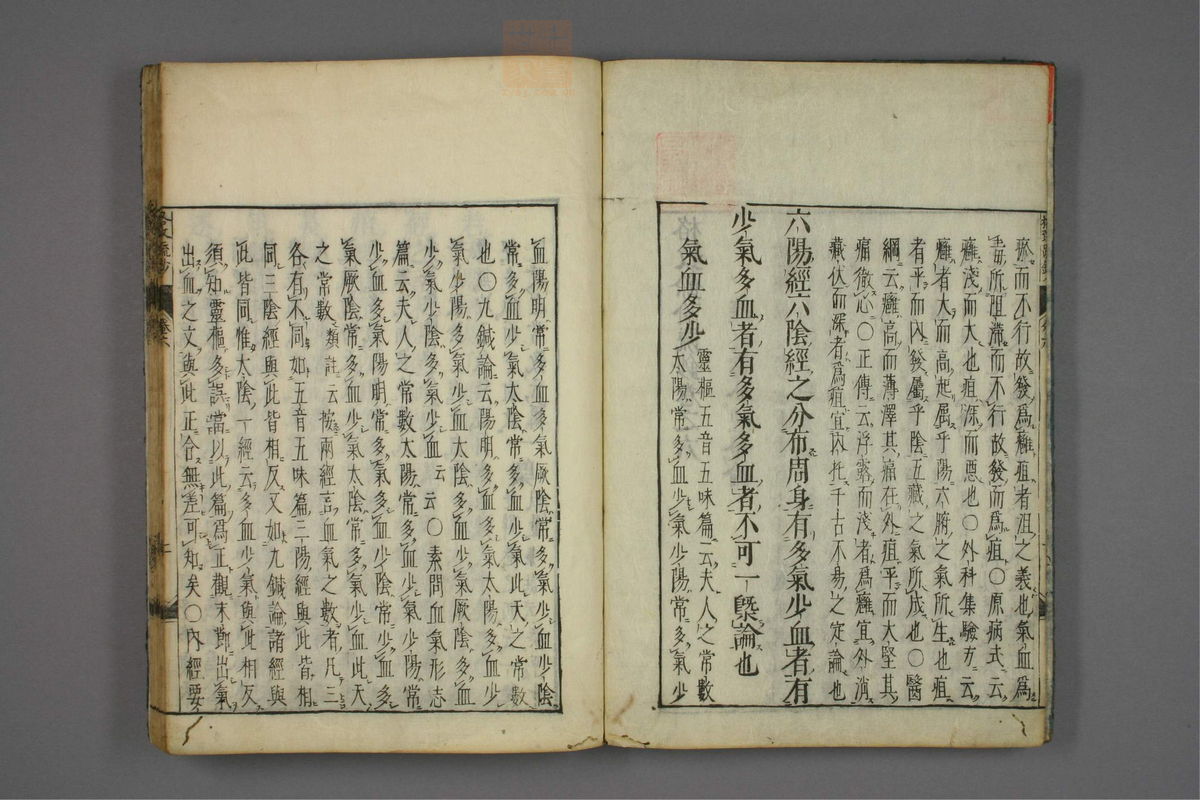 瘀而不行故發爲癰疽者沮之義也氣血爲
毒所沮滯而不行故發而爲疽〇原病式云
癰淺而大也疽深而惡也〇外科集驗方云
癰者大而高起屬乎陽六腑之氣所生也疽
者平而內發屬乎陰五臟之氣所成也〇醫
綱云癰高而薄澤其痛在外疽平而大堅其
痛徹心〇正傳云浮露而淺者爲癰宜外消
藏伏而深者爲疽宜內托千古不易之定論也
六陽經六陰經之分布周身有多氣少血者有
少氣多血者有多氣多血者不可一槩論也
氣血多少
靈樞五音五味篇云夫人之常數
太陽常多血少氣少陽常多氣少
血陽明常多血多氣厥陰常多氣少血少陰
常多血少氣太陰常多血少氣此天之常數
也〇九鍼論云陽明多血多氣太陽多血少
氣少陽多氣少血太陰多血少氣厥陰多血
少氣少陰多氣少血云云〇素問血氣形志
篇云夫人之常數太陽常多血少氣少陽常
少血多氣陽明常多氣多血少陰常少血多
氣厥陰常多血少氣太陰常多氣少血此天
之常數類註云按兩經言血氣之數者凡三
各有不同如五音五味篇三陽經與此皆相
同三陰經與此皆相反又如九鍼論諸經與
此皆同惟太陰一經云多血少氣與此相反
須知靈樞多誤當以此篇爲正觀末節出氣
出血之文與此正合無差可知矣〇內經要